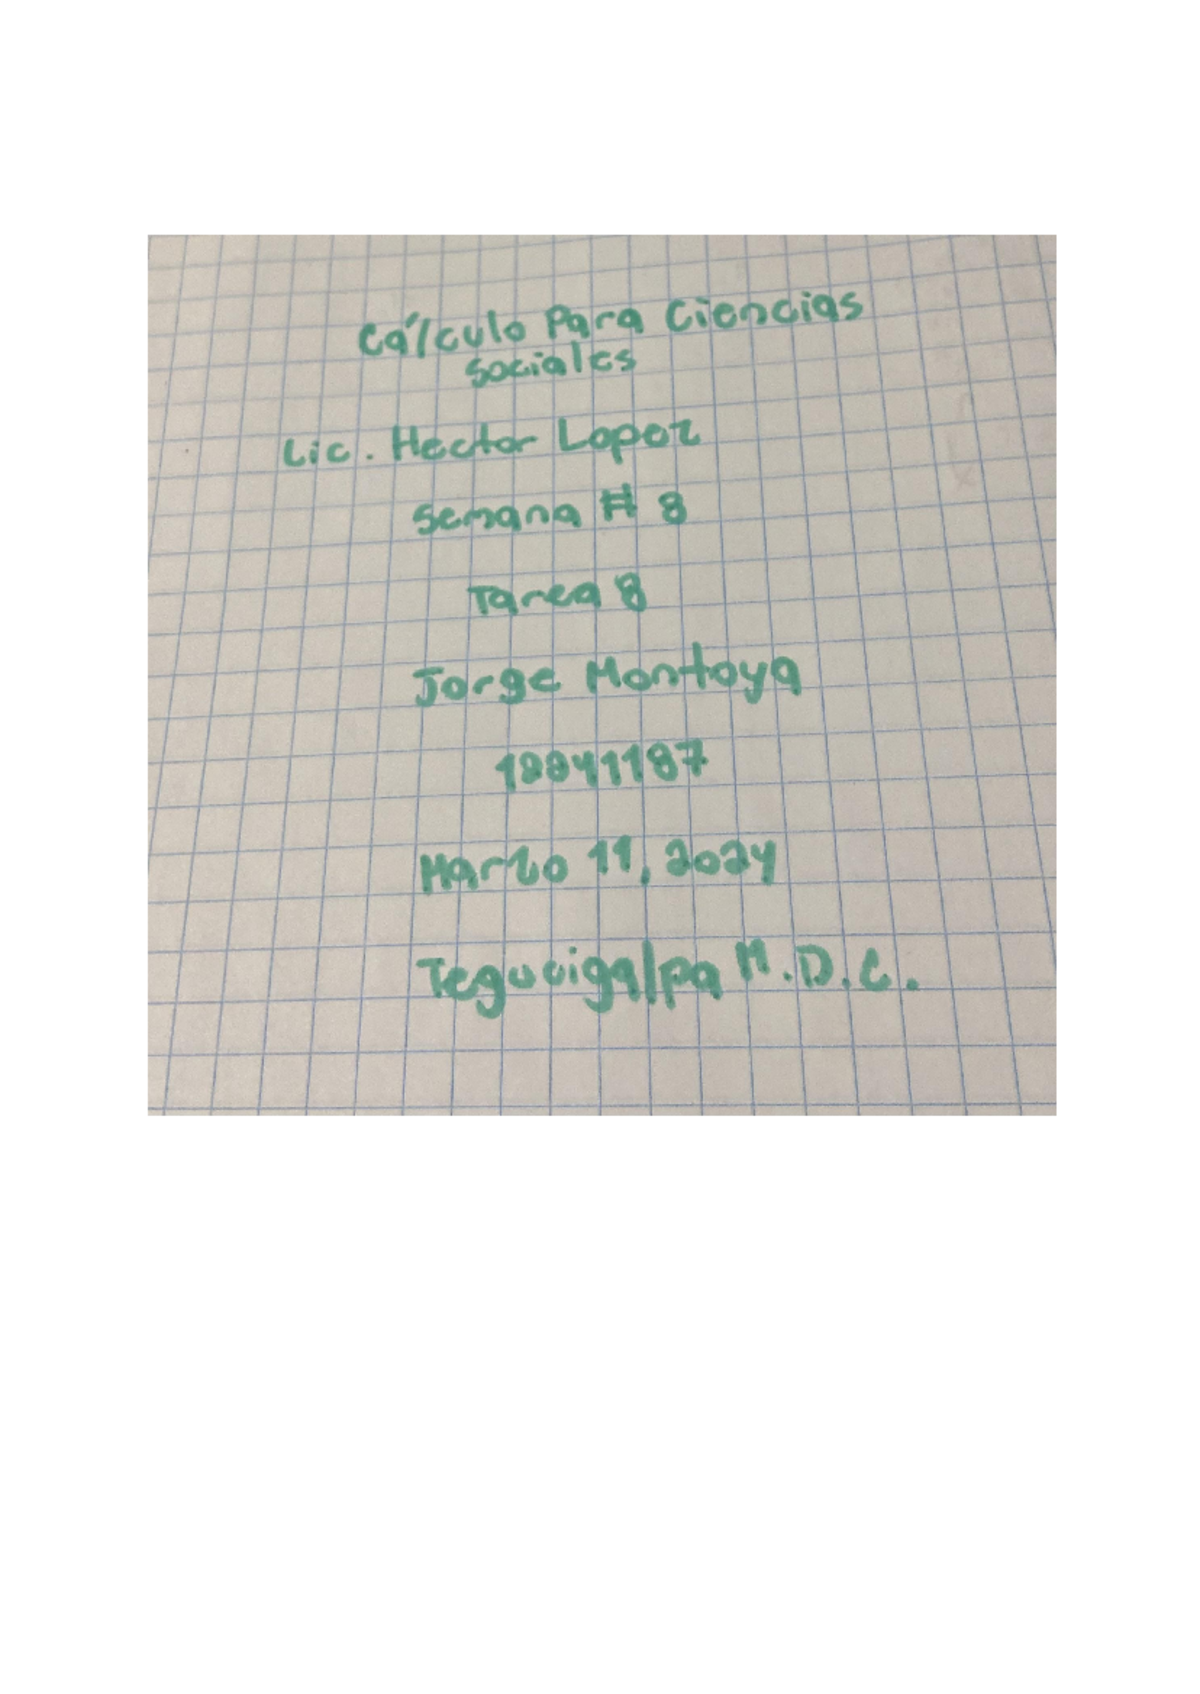 Cálculo Para Ciencias
Sociales
Lic. Hector Lopez
Semana # 8
Tarea 8
Jorge Montoya
Marzo 11, 2024
Tegucigalpa M.D.C.